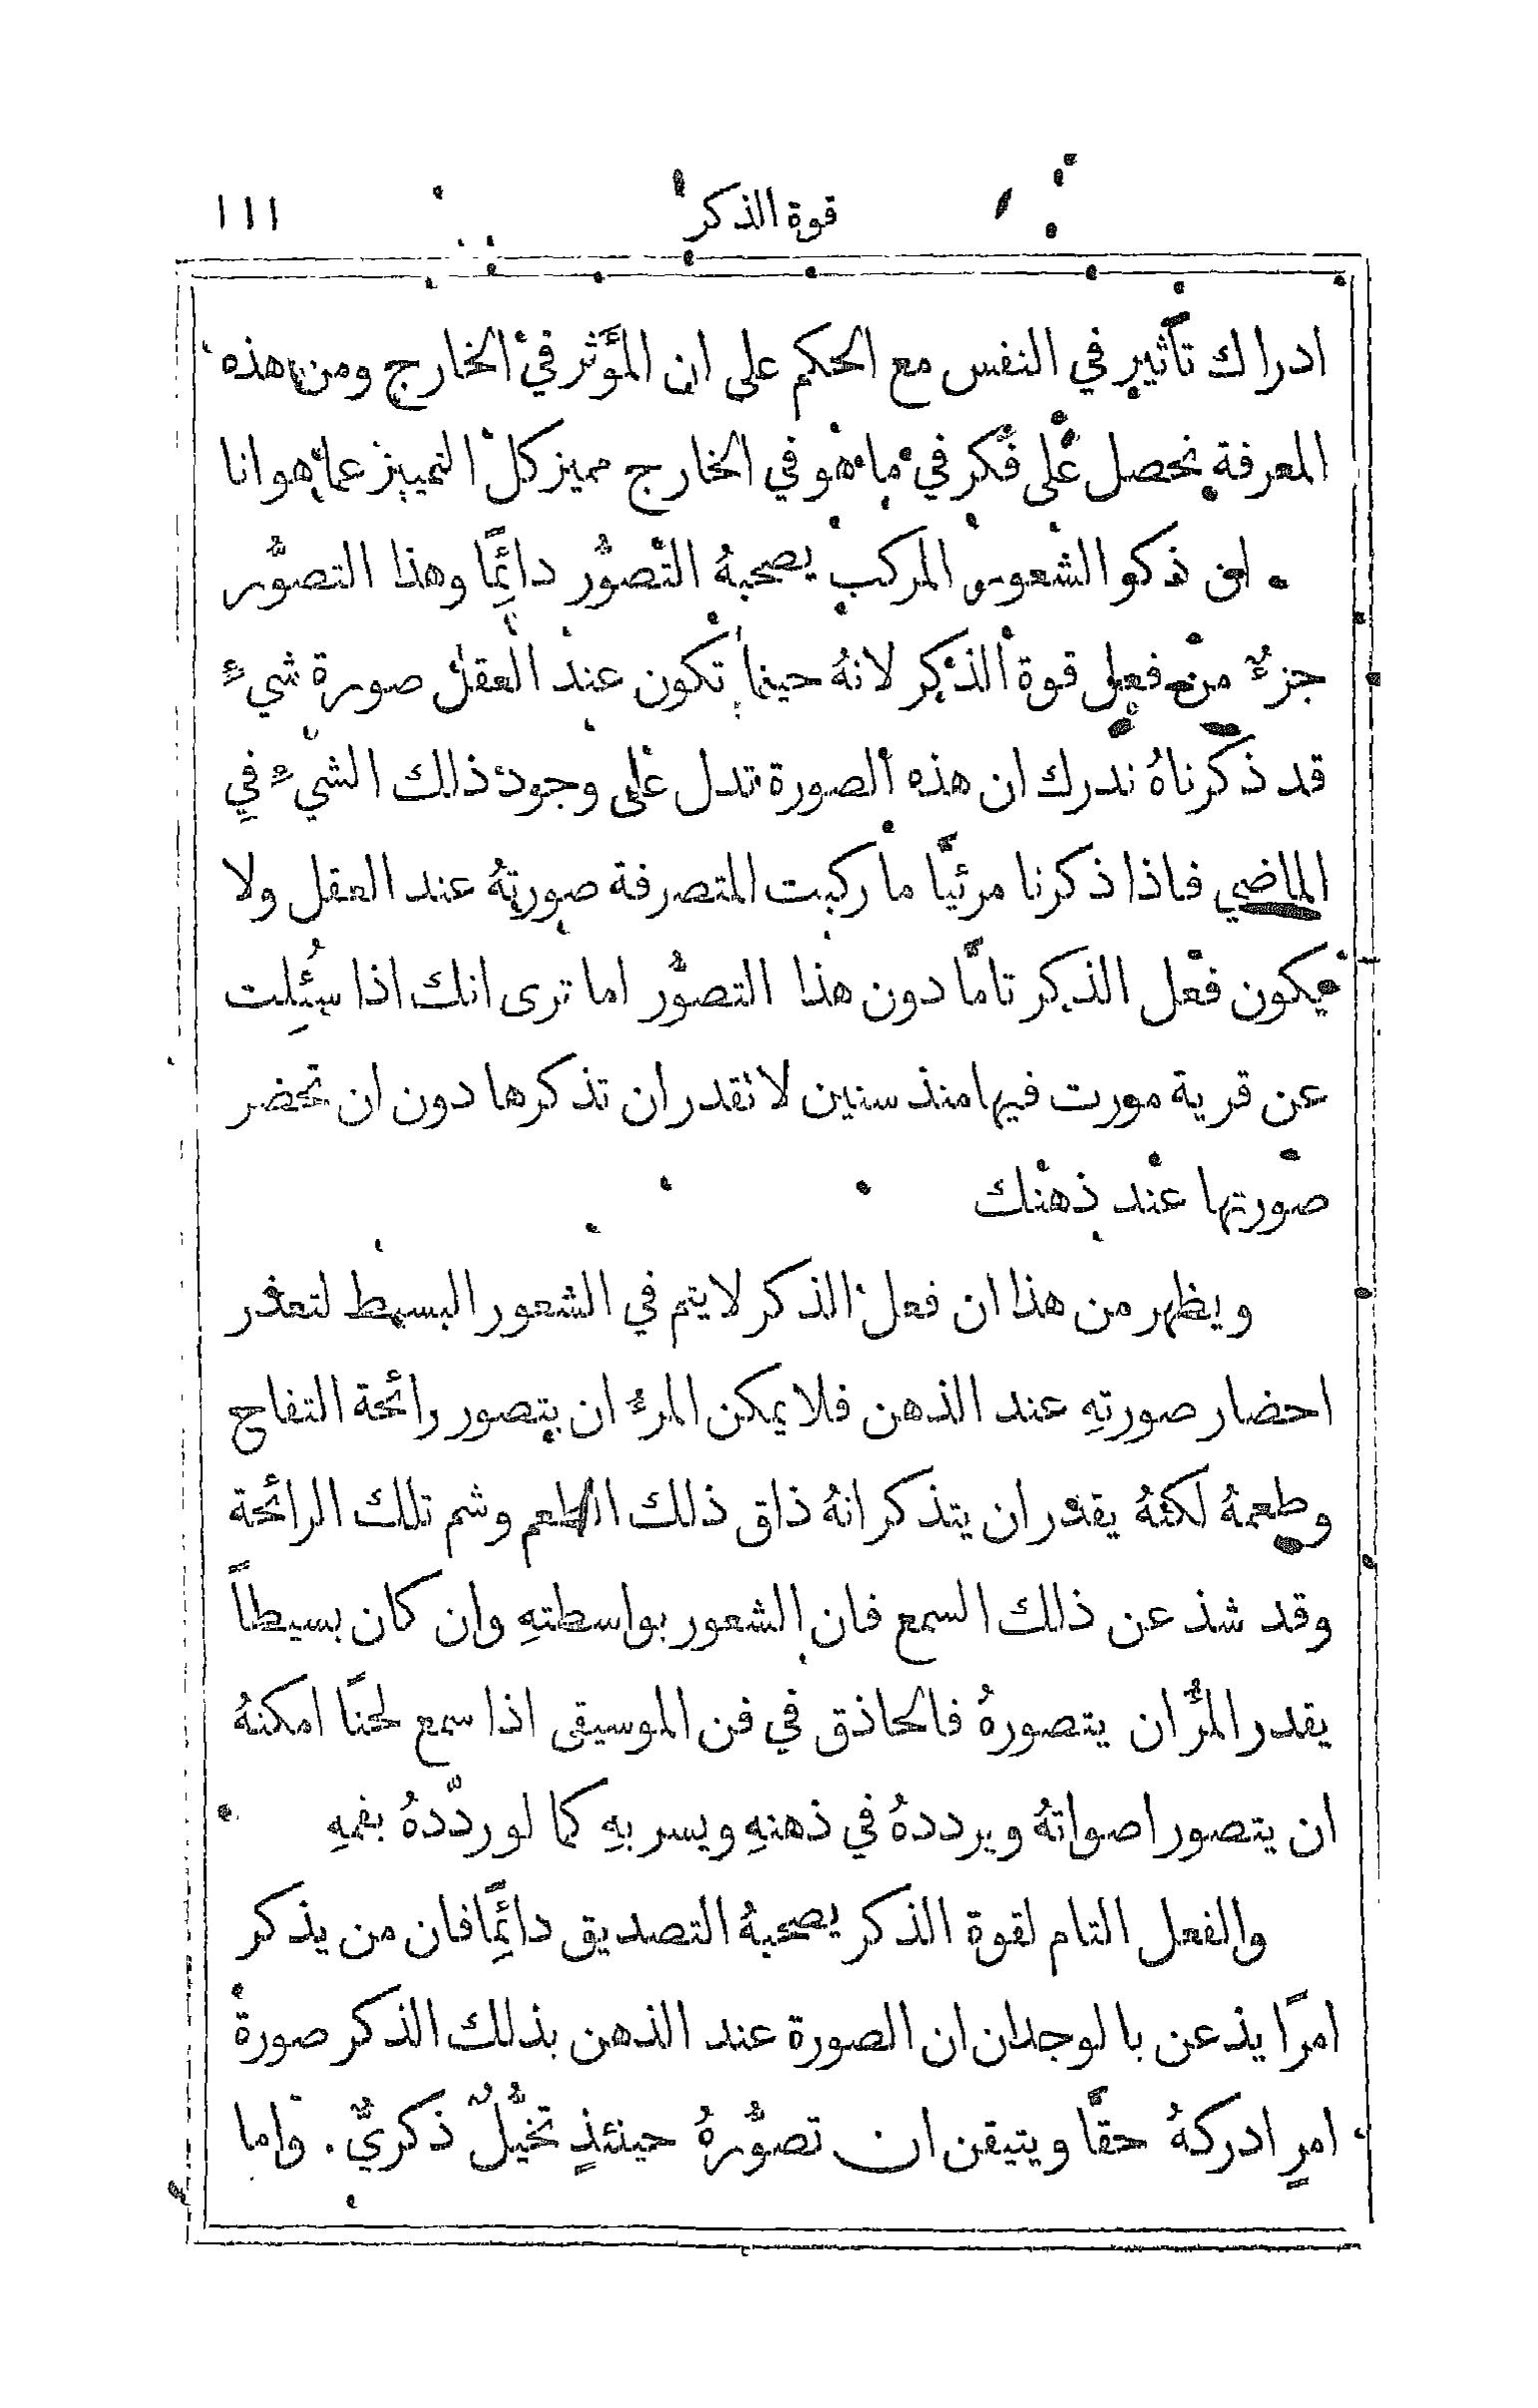 قوة الذكر ١١١
ادراك تأثير في النفس مع الحكم على ان المؤَثر في الخارج ومن هذه
المعرفة نحصل على فكر في ما هو في الخارج مميز كل التمييز عما هو انا
ذكر الشعور المركب يصحبهُ التصوُّر دائِمًا وهذا التصوُّر
جزءٌ من فعل قوة الذكر لانهُ حينما تكون عند العقل صورة شيءٍ
قد ذكرناهُ ندرك ان هذه الصورة تدل على وجود ذلك الشيءِ في
الماضي فاذا ذكرنا مرئيًّا ما ركبت المتصرفة صورتهُ عند العقل ولا
يكون فعل الذكر تامًّا دون هذا التصوُّر اما ترى انك اذا سُئِلت
عن قرية مورت فيها منذ سنين لا تقدر ان تذكرها دون ان تحضر
صورتها عند ذهنك
ويظهر من هذا ان فعل الذكر لا يتم في الشعور البسيط لتعذر
احضار صورتهِ عند الذهن فلا يمكن المرءُ ان يتصور رائحة التفاح
وطعمهُ لكنهُ يقدر ان يتذكر انهُ ذاق ذلك الطعم وشم تلك الرائحة
وقد شذ عن ذلك السمع فان الشعور بواسطتهِ وان كان بسيطاً
يقدر المرُّ ان يتصورهُ فالحاذق في فن الموسيقى اذا سمع لحنًا امكنهُ
ان يتصور اصواتهُ ويرددهُ في ذهنهِ ويسر بهِ كما لو ردّدهُ بفمهِ
والفعل التام لقوة الذكر يصحبهُ التصديق دائِمًا فان من يذكر
امرًا يذعن بالوجدان ان الصورة عند الذهن بذلك الذكر صورة
امرٍ ادركهُ حقًّا ويتيقن ان تصوُّرهُ حينئذٍ تخيُّلٌ ذكريٌّ . واما